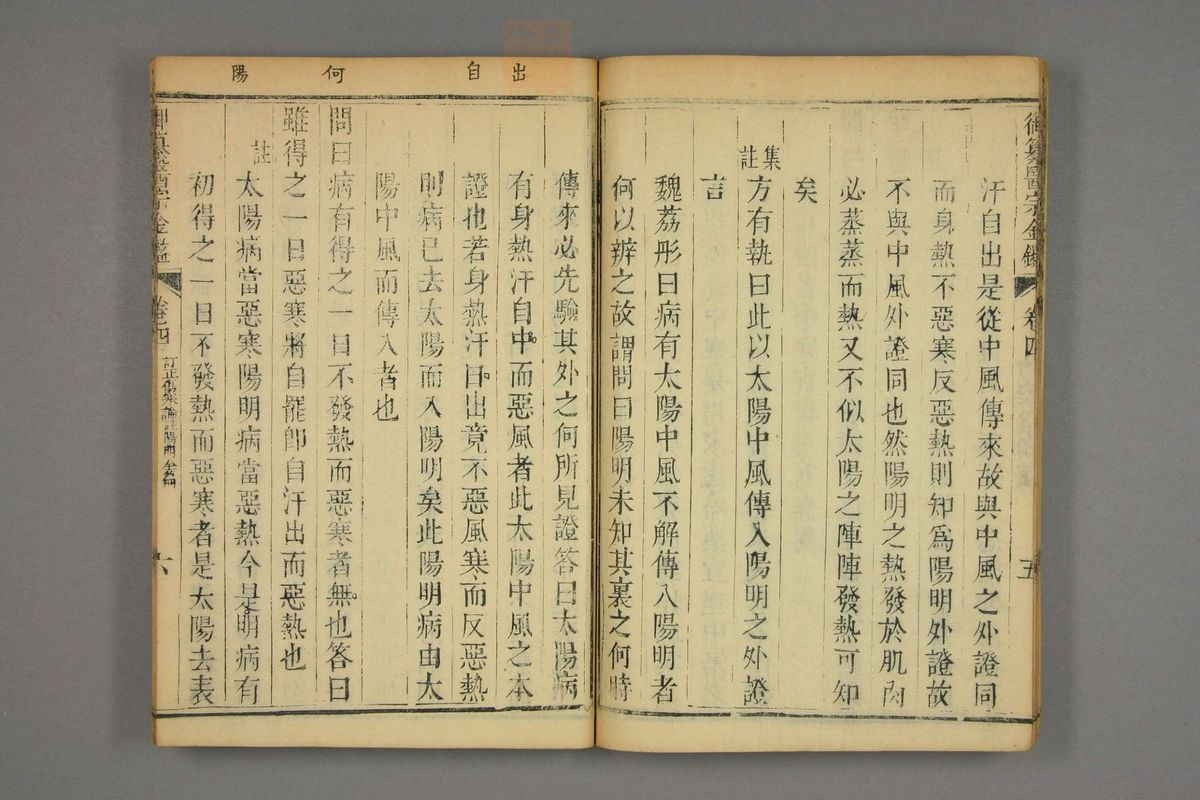 御纂醫宗金鑑 卷四 五
汗自出是從中風傳來故與中風之外證同
而身熱不惡寒反惡熱則知爲陽明外證故
不與中風外證同也然陽明之熱發於肌肉
必蒸蒸而熱又不似太陽之陣陣發熱可知
矣
集註 方有執曰此以太陽中風傳入陽明之外證
言
魏荔彤曰病有太陽中風不解傳入陽明者
何以辨之故謂問曰陽明未知其裏之何時
出 自 何 陽
傳來必先驗其外之何所見證答曰太陽病
有身熱汗自中而惡風者此太陽中風之本
證也若身熱汗日出竟不惡風寒而反惡熱
則病已去太陽而入陽明矣此陽明病由太
陽中風而傳入者也
問曰病有得之一日不發熱而惡寒者無也答曰
雖得之一日惡寒將自罷卽自汗出而惡熱也
註 太陽病當惡寒陽明病當惡熱今是明病有
初得之一日不發熱而惡寒者是太陽去表
御纂醫宗金鑑 卷四 訂正傷寒論註陽明全篇 六